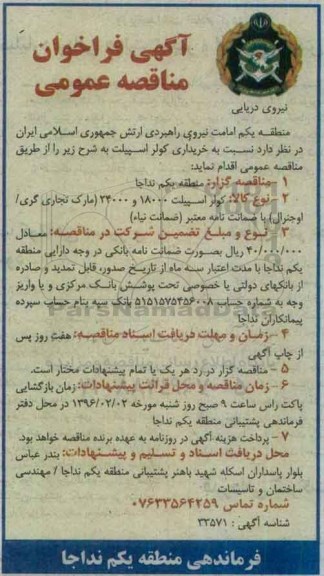 آگهی فراخوان
مناقصه عمومی
نیروی دریایی
منطقه یکم امامت نیروی راهبردی ارتش جمهوری اسلامی ایران
در نظر دارد نسبت به خریداری کولر اسپیلت به شرح زیر را از طریق
مناقصه عمومی اقدام نماید:
۱ - مناقصه گزار: منطقه یکم نداجا
۲ - نوع کالا: کولر اسپیلت ۱۸۰۰۰ و ۲۴۰۰۰ (مارک تجاری گری/
اوجنرال) با ضمانت نامه معتبر (ضمانت نیاه)
۳ - نوع و مبلغ تضمین شرکت در مناقصه: معادل
۴۰/۰۰۰/۰۰۰ ریال بصورت ضمانت نامه بانکی در وجه دارایی منطقه
یکم نداجا با مدت اعتبار سه ماه از تاریخ صدور، قابل تمدید و صادره
از بانکهای دولتی یا خصوصی تحت پوشش بانک مرکزی و یا واریز
وجه به شماره حساب ۵۱۵۱۵۷۵۴۵۶۰۰۸ بانک سپه بنام حساب سپرده
پیمانکاران نداجا
۴ - زمان و مهلت دریافت اسناد مناقصه: هفت روز پس
از چاپ آگهی
۵ - مناقصه گزار در رد هر یک یا تمام پیشنهادات مختار است.
۶ - زمان مناقصه و محل قرائت پیشنهادات: زمان بازگشایی
پاکت راس ساعت ۹ صبح روز شنبه مورخه ۱۳۹۶/۰۲/۰۲ در محل دفتر
فرماندهی پشتیبانی منطقه یکم نداجا
۷ - پرداخت هزینه آگهی در روزنامه به عهده برنده مناقصه خواهد بود.
محل دریافت اسناد و تسلیم و پیشنهادات: بندر عباس
بلوار پاسداران اسکله شهید باهنر پشتیبانی منطقه یکم نداجا / مهندسی
ساختمان و تاسیسات
شماره تماس ۰۷۶۳۳۵۶۴۲۵۹
شناسه آگهی : ۳۳۵۷۱
فرماندهی منطقه یکم نداجا